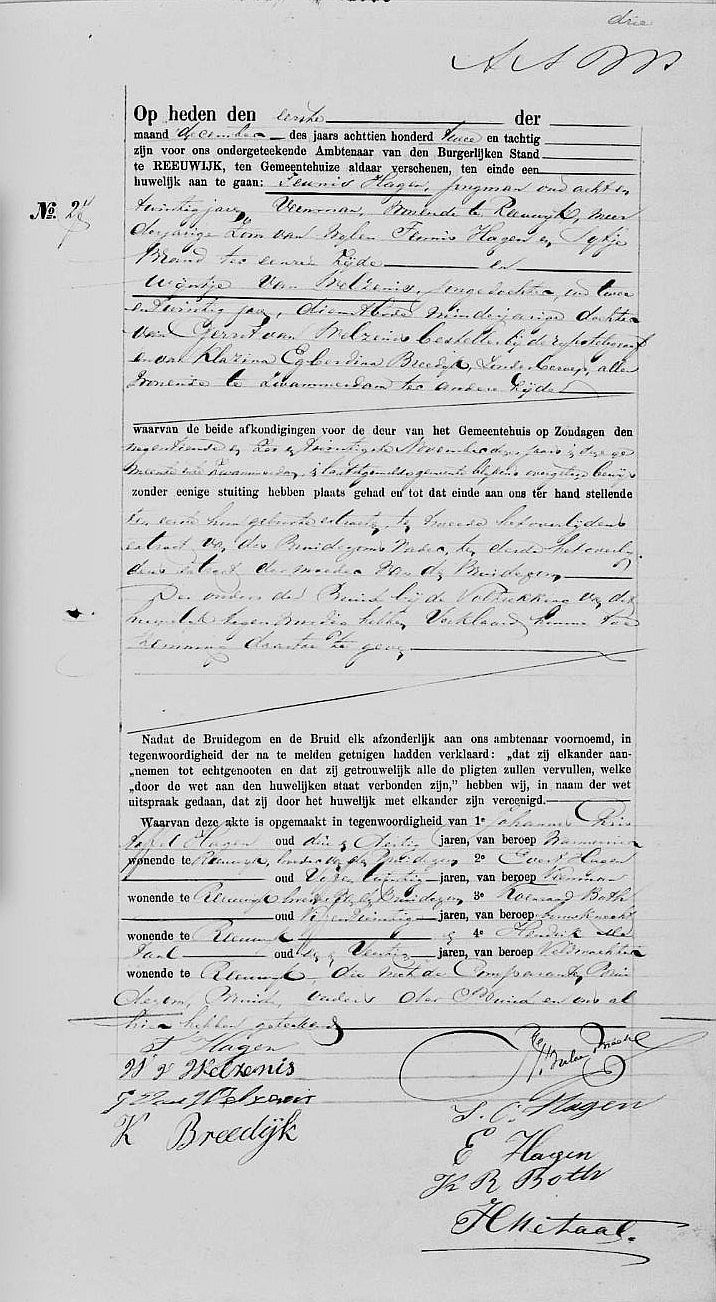 drie
Op heden den eerste der
maand December des jaars achttien honderd twee en tachtig
zijn voor ons ondergeteekende Ambtenaar van den Burgerlijken Stand
te REEUWIJK, ten Gemeentehuize aldaar verschenen, ten einde een
huwelijk aan te gaan: Teunis Hagen, jongman oud acht en
No. 24
twintig jaar, Veenman, wonende te Reeuwijk, meer
derjarige Zoon van wijlen Teunis Hagen en Sijtje
Brand ter eenre Zijde en
Wijntje van Welzenis, jongedochter, oud twee
en twintig jaar, dienstbode minderjarige dochter
van Gerrit van Welzenis besteller bij de rijkstelegraaf
en van Klazina Egberdina Breedijk, zonder beroep, alle
wonende te Zwammerdam ter andere Zijde
waarvan de beide afkondigingen voor de deur van het Gemeentehuis op Zondagen den
negentiende en zes en twintigste November dezes jaars in deze ge
meente en te Zwammerdam, in laatstgemelde gemeente blijkens overgelegd bewijs
zonder eenige stuiting hebben plaats gehad en tot dat einde aan ons ter hand stellende
ten eerste hun geboorte extracten, ten tweede het overlijdens
extract van des Bruidegoms Vader, ten derde het overlij
dens extract der moeder van den Bruidegom
De ouders der Bruid bij de Voltrekking van dit
huwelijk tegenwoordig hebben Verklaard hunne toe
stemming daartoe te geven
Nadat de Bruidegom en de Bruid elk afzonderlijk aan ons ambtenaar voornoemd, in
tegenwoordigheid der na te melden getuigen hadden verklaard: „dat zij elkander aan-
„nemen tot echtgenooten en dat zij getrouwelijk alle de pligten zullen vervullen, welke
„door de wet aan den huwelijken staat verbonden zijn,” hebben wij, in naam der wet
uitspraak gedaan, dat zij door het huwelijk met elkander zijn vereenigd.
Waarvan deze akte is opgemaakt in tegenwoordigheid van 1e Johannes Chris
toffel Hagen oud drie en dertig jaren, van beroep
wonende te Reeuwijk, broeder van den Bruidegom 2e Evert Hagen
oud twintig jaren, van beroep Veenman
wonende te Reeuwijk broeder van den Bruidegom 3e Koenraad Both
oud en twintig jaren, van beroep
wonende te Reeuwijk en 4e Hendrik Me
taal oud en Veertig jaren, van beroep Veldwachter
wonende te Reeuwijk, die met de Comparanten, Brui
degom, Bruid, ouders der Bruid en ons al
hier hebben geteekend
T Hagen
W v Welzenis
G van Welzenis
K Breedijk
J. C. Hagen
E Hagen
K R Both
H Metaal.